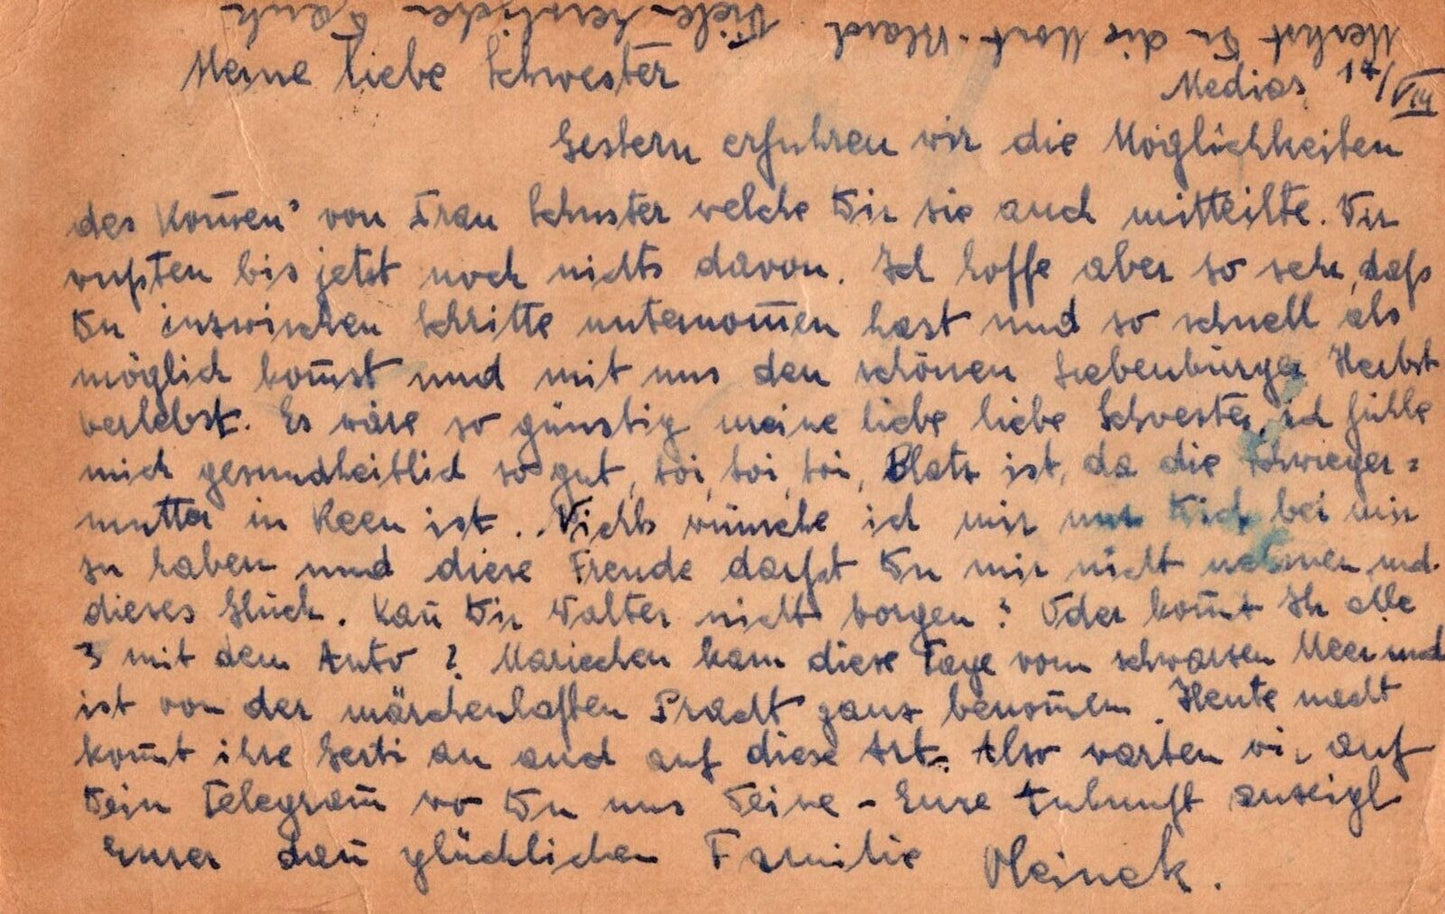 Meine liebe Schwester
Medias, 17/VIII
Gestern erfuhren wir die Möglichkeiten
des Kom̄en's von Frau Schuster welche Dir sie auch mitteilte. Wir
wußten bis jetzt noch nichts davon. Ich hoffe aber so sehr, daß
Du inzwischen Schritte unternom̄en hast und so schnell als
möglich kom̄st und mit uns den schönen Siebenbürger Herbst
verlebst. Es wäre so günstig meine liebe liebe Schwester, ich fühle
mich gesundheitlich so gut, toi, toi, toi, Platz ist, da die Schwieger=
mutter in Reen ist.. Nichts wünsche ich mir nur Dich bei mir
zu haben und diese Freude darfst Du mir nicht nehmen, und
dieses Glück. Kan̄ Dir Walter nicht borgen? Oder kom̄t Ihr alle
3 mit dem Auto? Mariechen kam diese Tage vom schwarzen Meer und
ist von der märchenhaften Pracht ganz benom̄en. Heute nacht
kom̄t ihre Gerti an auch auf diese Art. Also warten wir auf
Dein Telegram̄ wo Du uns Deine - Eure Ankunft anzeigt
Eurer dan̄ glücklichen Familie
Merkst Du die Viele herzlichen Dank